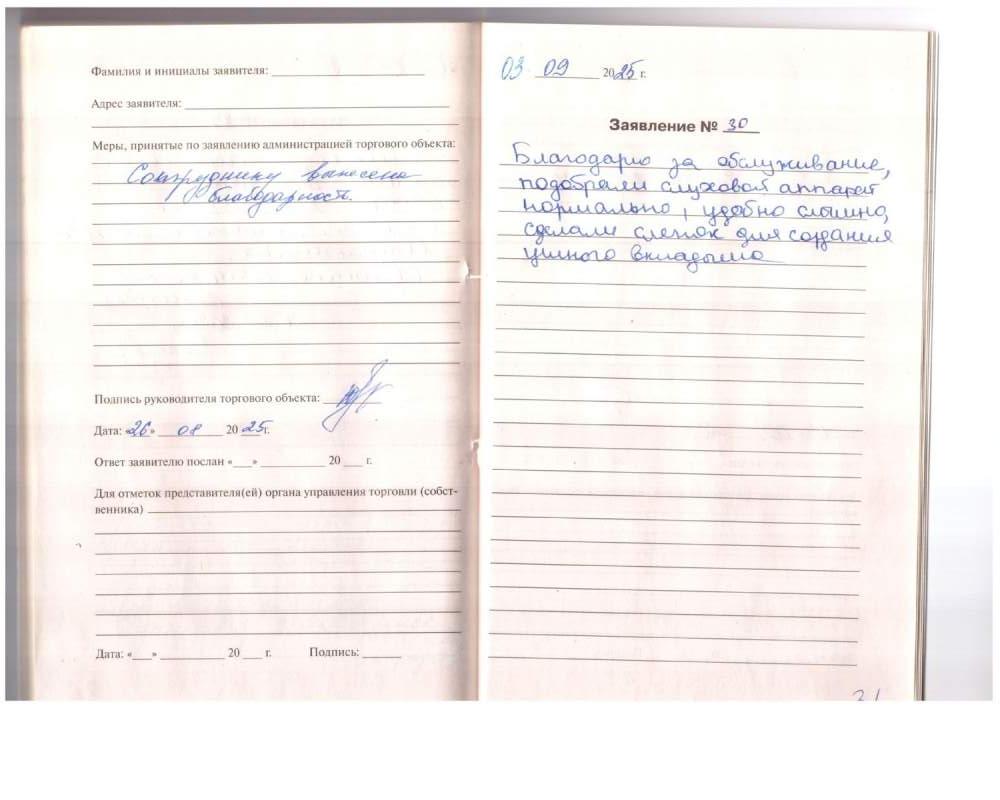 Фамилия и инициалы заявителя:
Адрес заявителя:
Меры, принятые по заявлению администрацией торгового объекта:
Сотруднику вынесена
благодарность.
Подпись руководителя торгового объекта:
Дата: «26» 08 20 25 г.
Ответ заявителю послан «___» ________ 20 ___ г.
Для отметок представителя(ей) органа управления торговли (собст-
венника)
Дата: «___» ________ 20 ___ г. Подпись: ______
03 09 2025 г.
Заявление № 30
Благодарю за обслуживание,
подобрали слуховой аппарат
нормально, удобно слышно,
сделали слепок для создания
ушного вкладыша